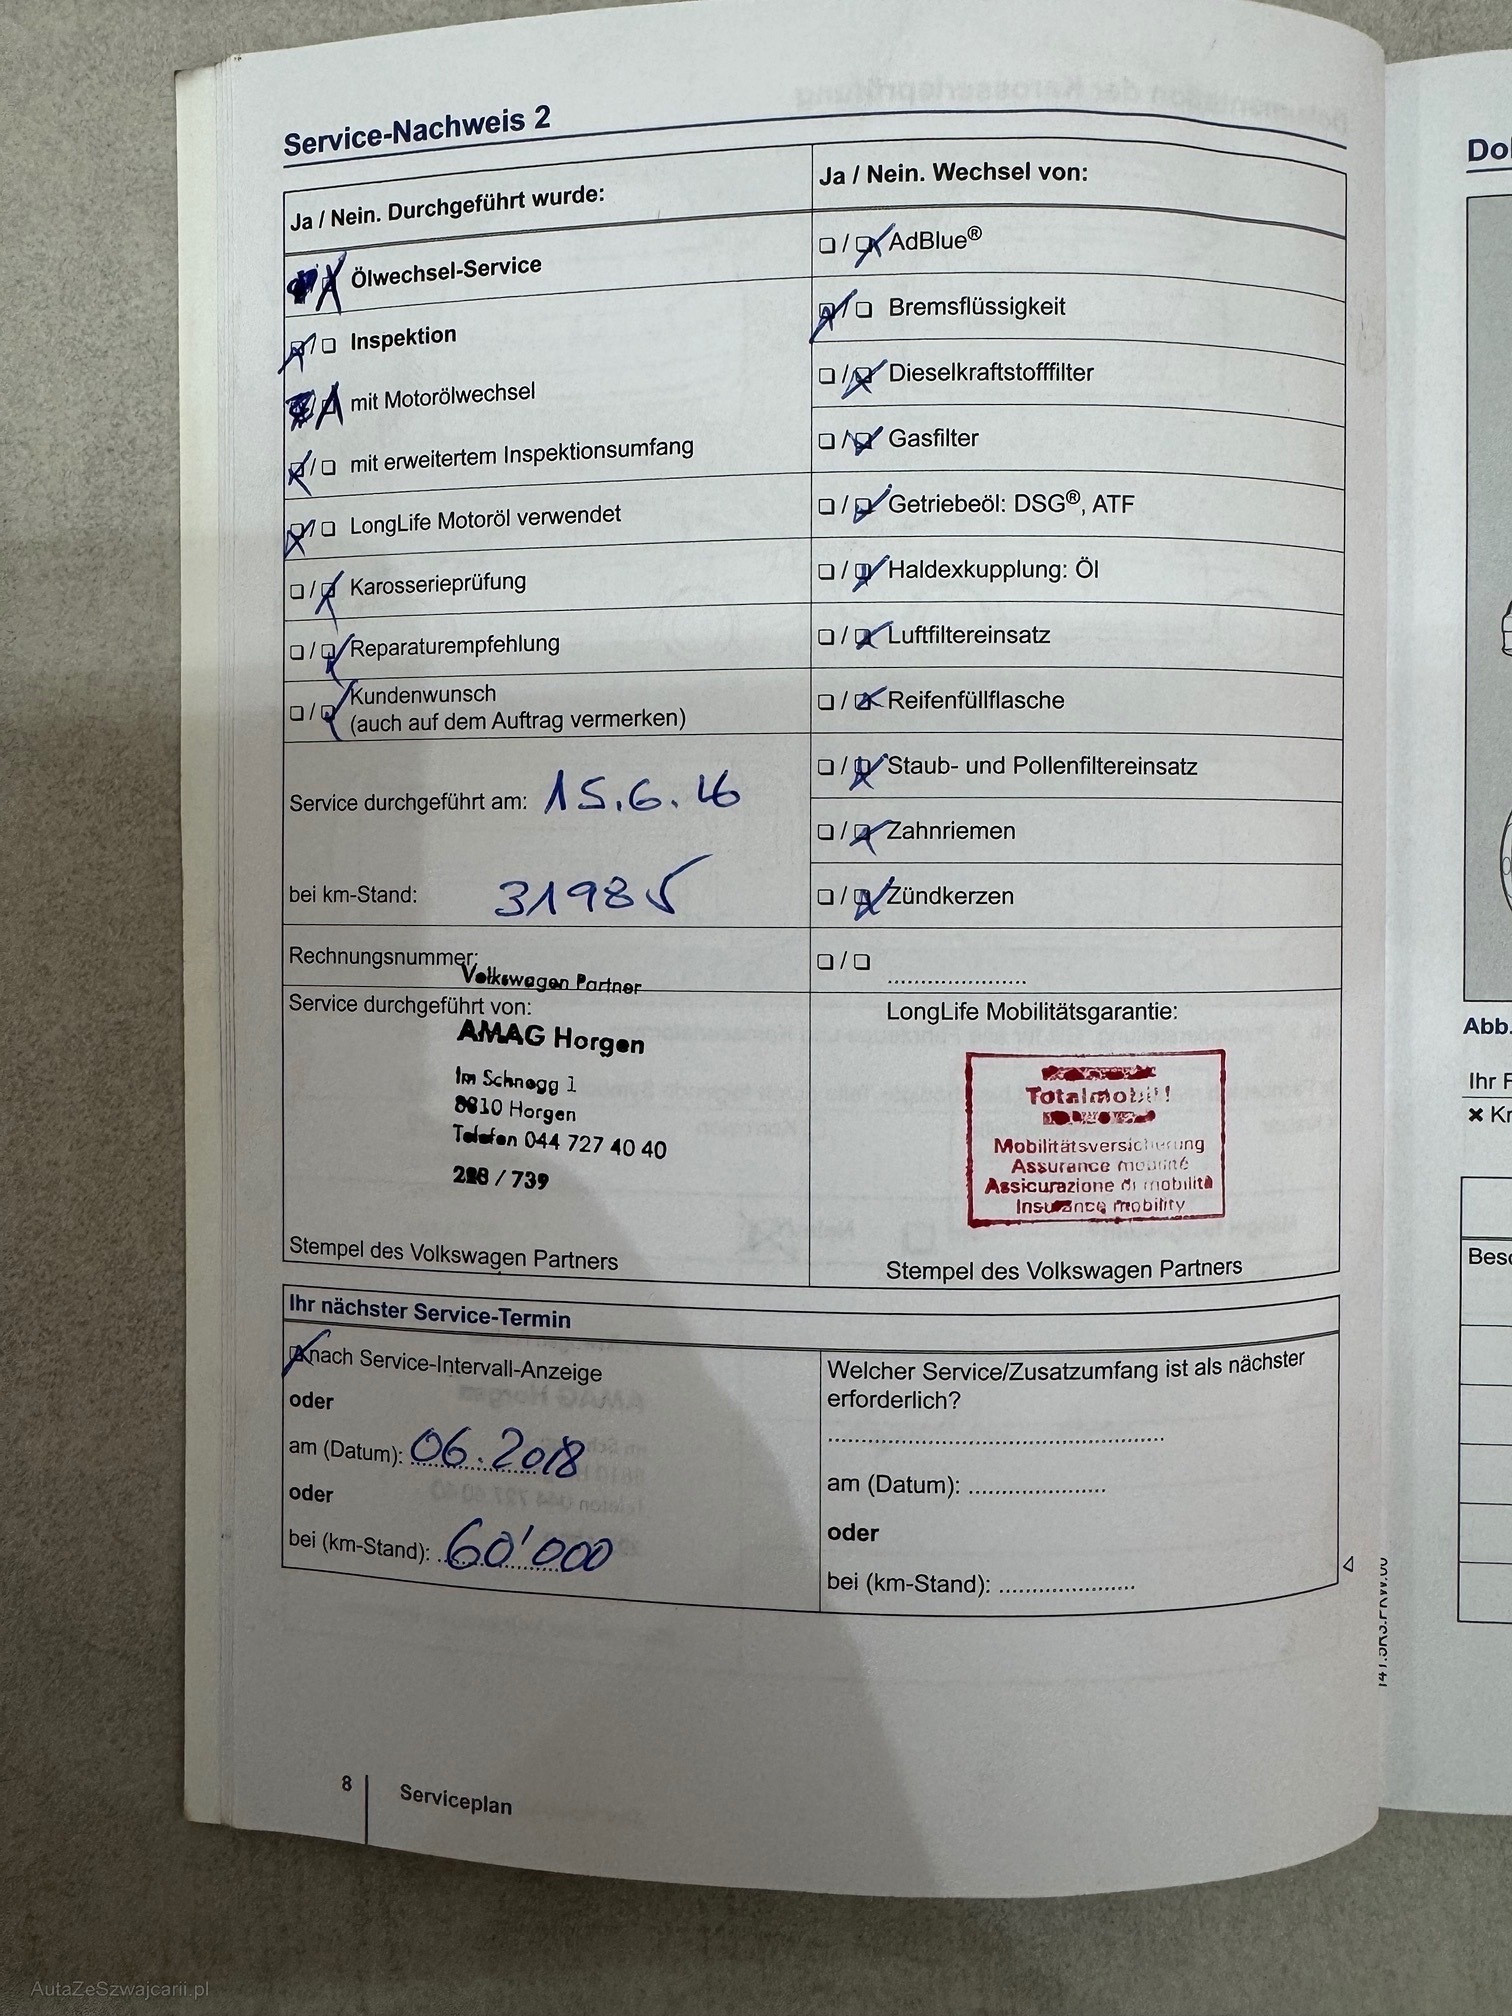 Service-Nachweis 2
Ja / Nein. Durchgeführt wurde:
Ölwechsel-Service
Inspektion
mit Motorölwechsel
mit erweitertem Inspektionsumfang
LongLife Motoröl verwendet
Karosserieprüfung
Reparaturempfehlung
Kundenwunsch
(auch auf dem Auftrag vermerken)
Service durchgeführt am: 15.6.16
bei km-Stand: 31985
Rechnungsnummer:
Volkswagen Partner
Service durchgeführt von:
AMAG Horgen
Im Schnegg 1
8810 Horgen
Telefon 044 727 40 40
/ 739
Stempel des Volkswagen Partners
Ja / Nein. Wechsel von:
AdBlue®
Bremsflüssigkeit
Dieselkraftstofffilter
Gasfilter
Getriebeöl: DSG®, ATF
Haldexkupplung: Öl
Luftfiltereinsatz
Reifenfüllflasche
Staub- und Pollenfiltereinsatz
Zahnriemen
Zündkerzen
LongLife Mobilitätsgarantie:
Totalmobil!
Mobilitätsversicherung
Assurance mobilité
Assicurazione di mobilità
Insurance mobility
Stempel des Volkswagen Partners
Ihr nächster Service-Termin
nach Service-Intervall-Anzeige
oder
am (Datum): 06.2018
oder
bei (km-Stand): 60'000
Welcher Service/Zusatzumfang ist als nächster
erforderlich?
am (Datum):
oder
bei (km-Stand):
8
Serviceplan
Abb.
AutaZeSzwajcarii.pl